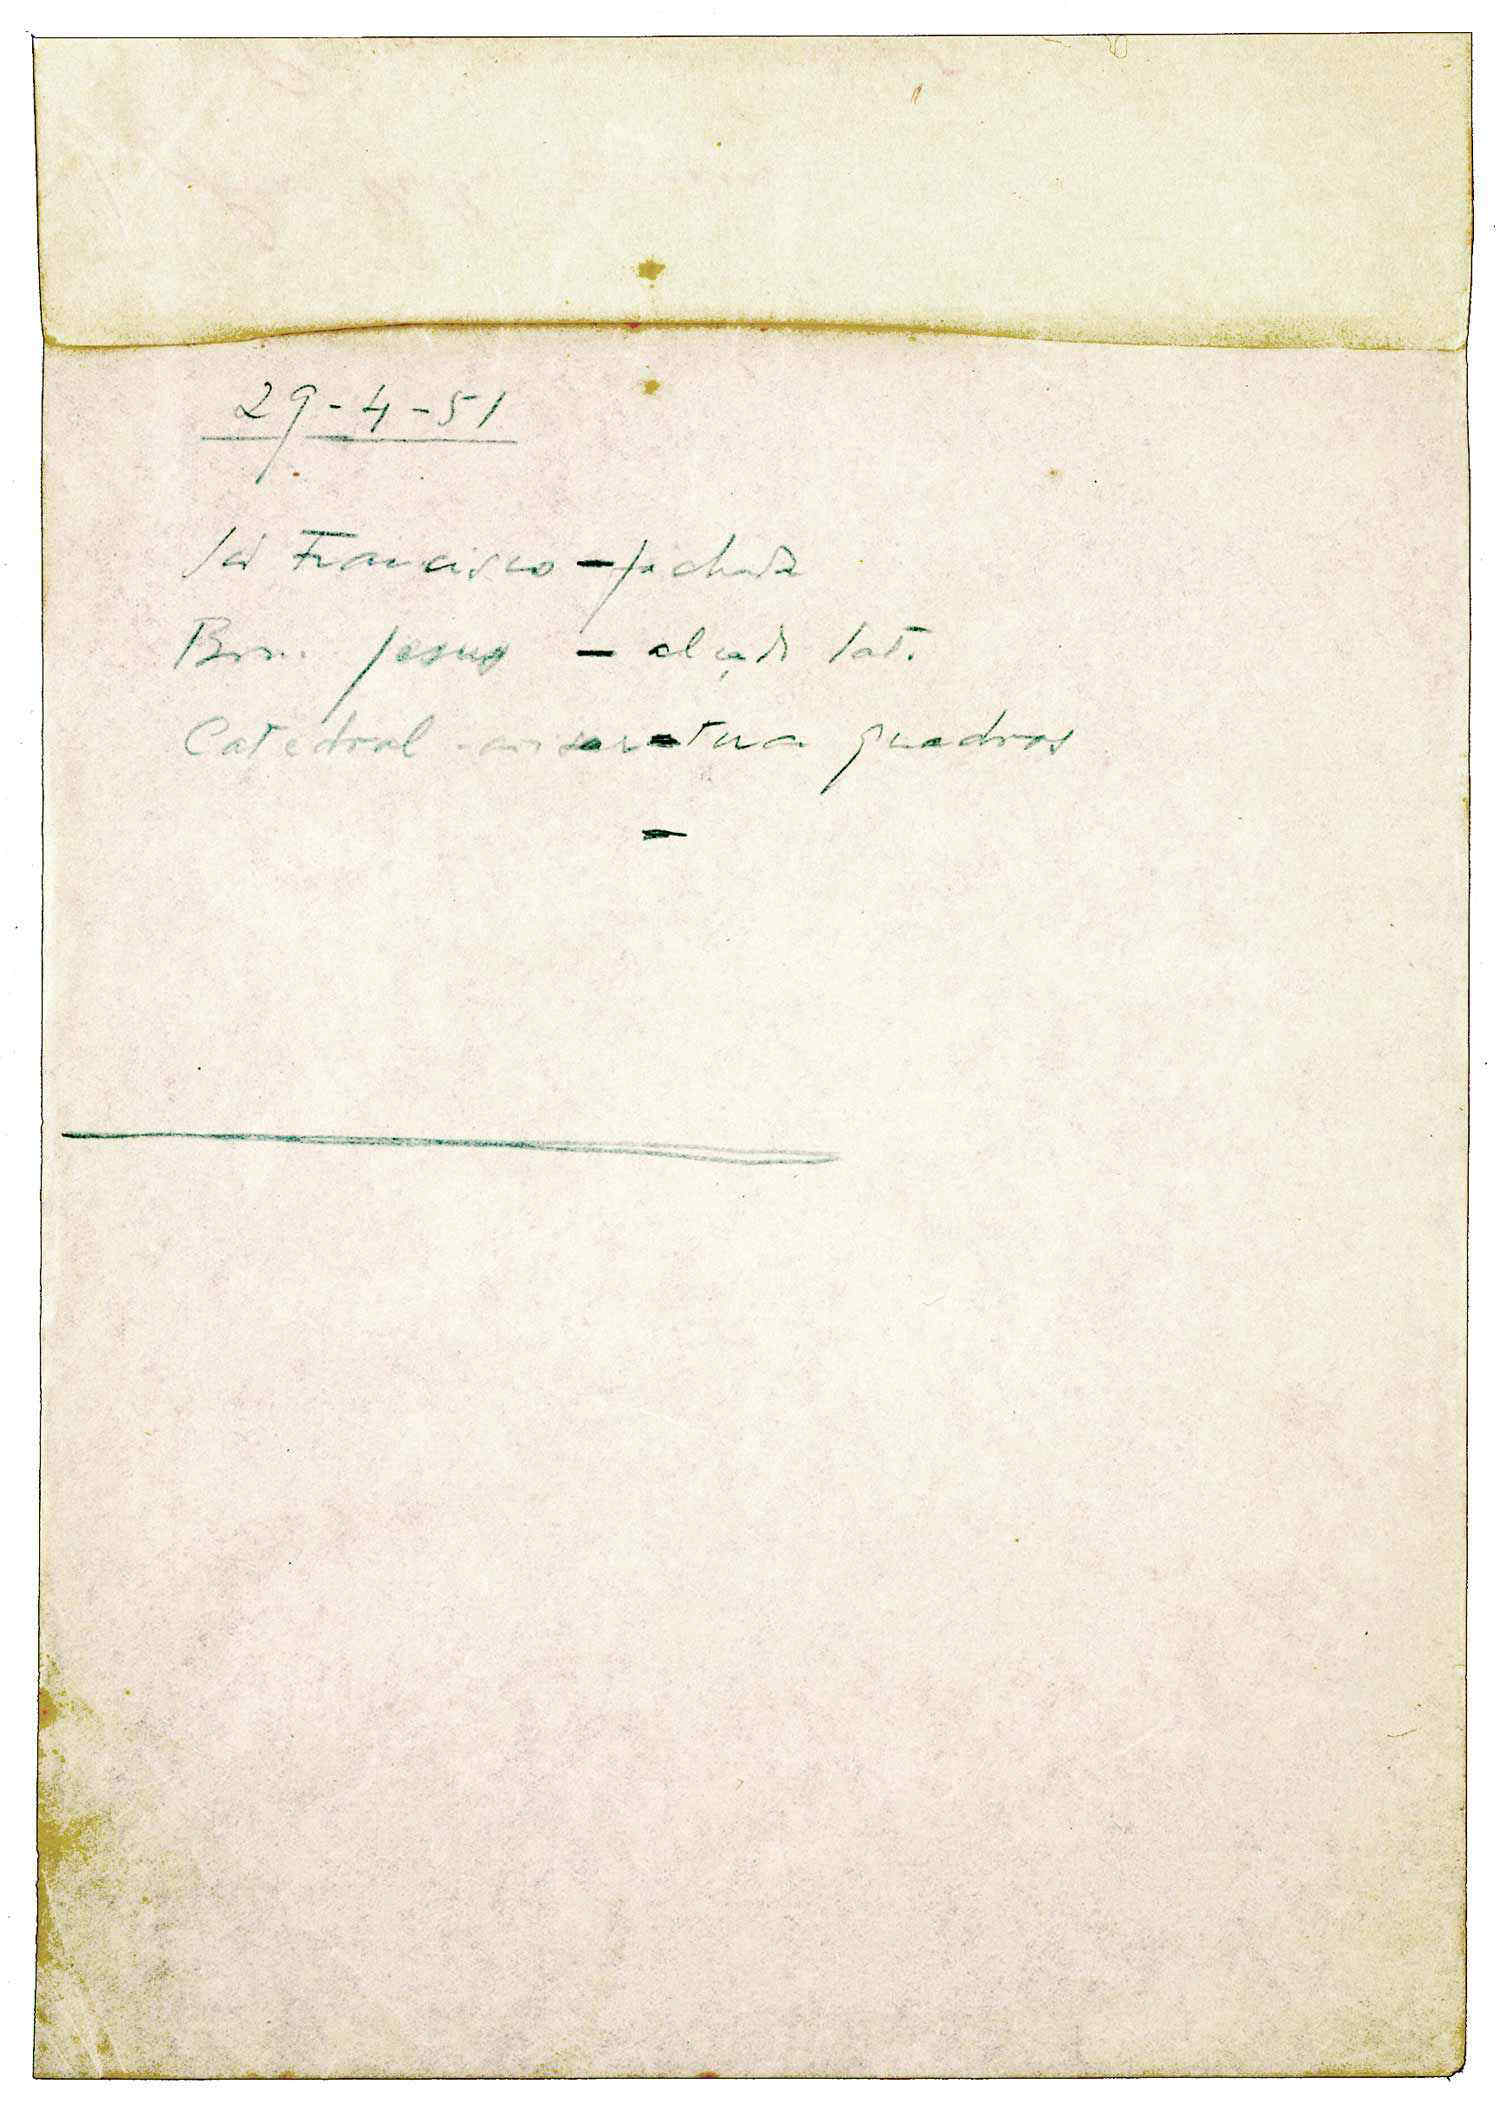 29-4-51
São Francisco - fachada
Bom Jesus - alçado lat.
Catedral - quadros
-